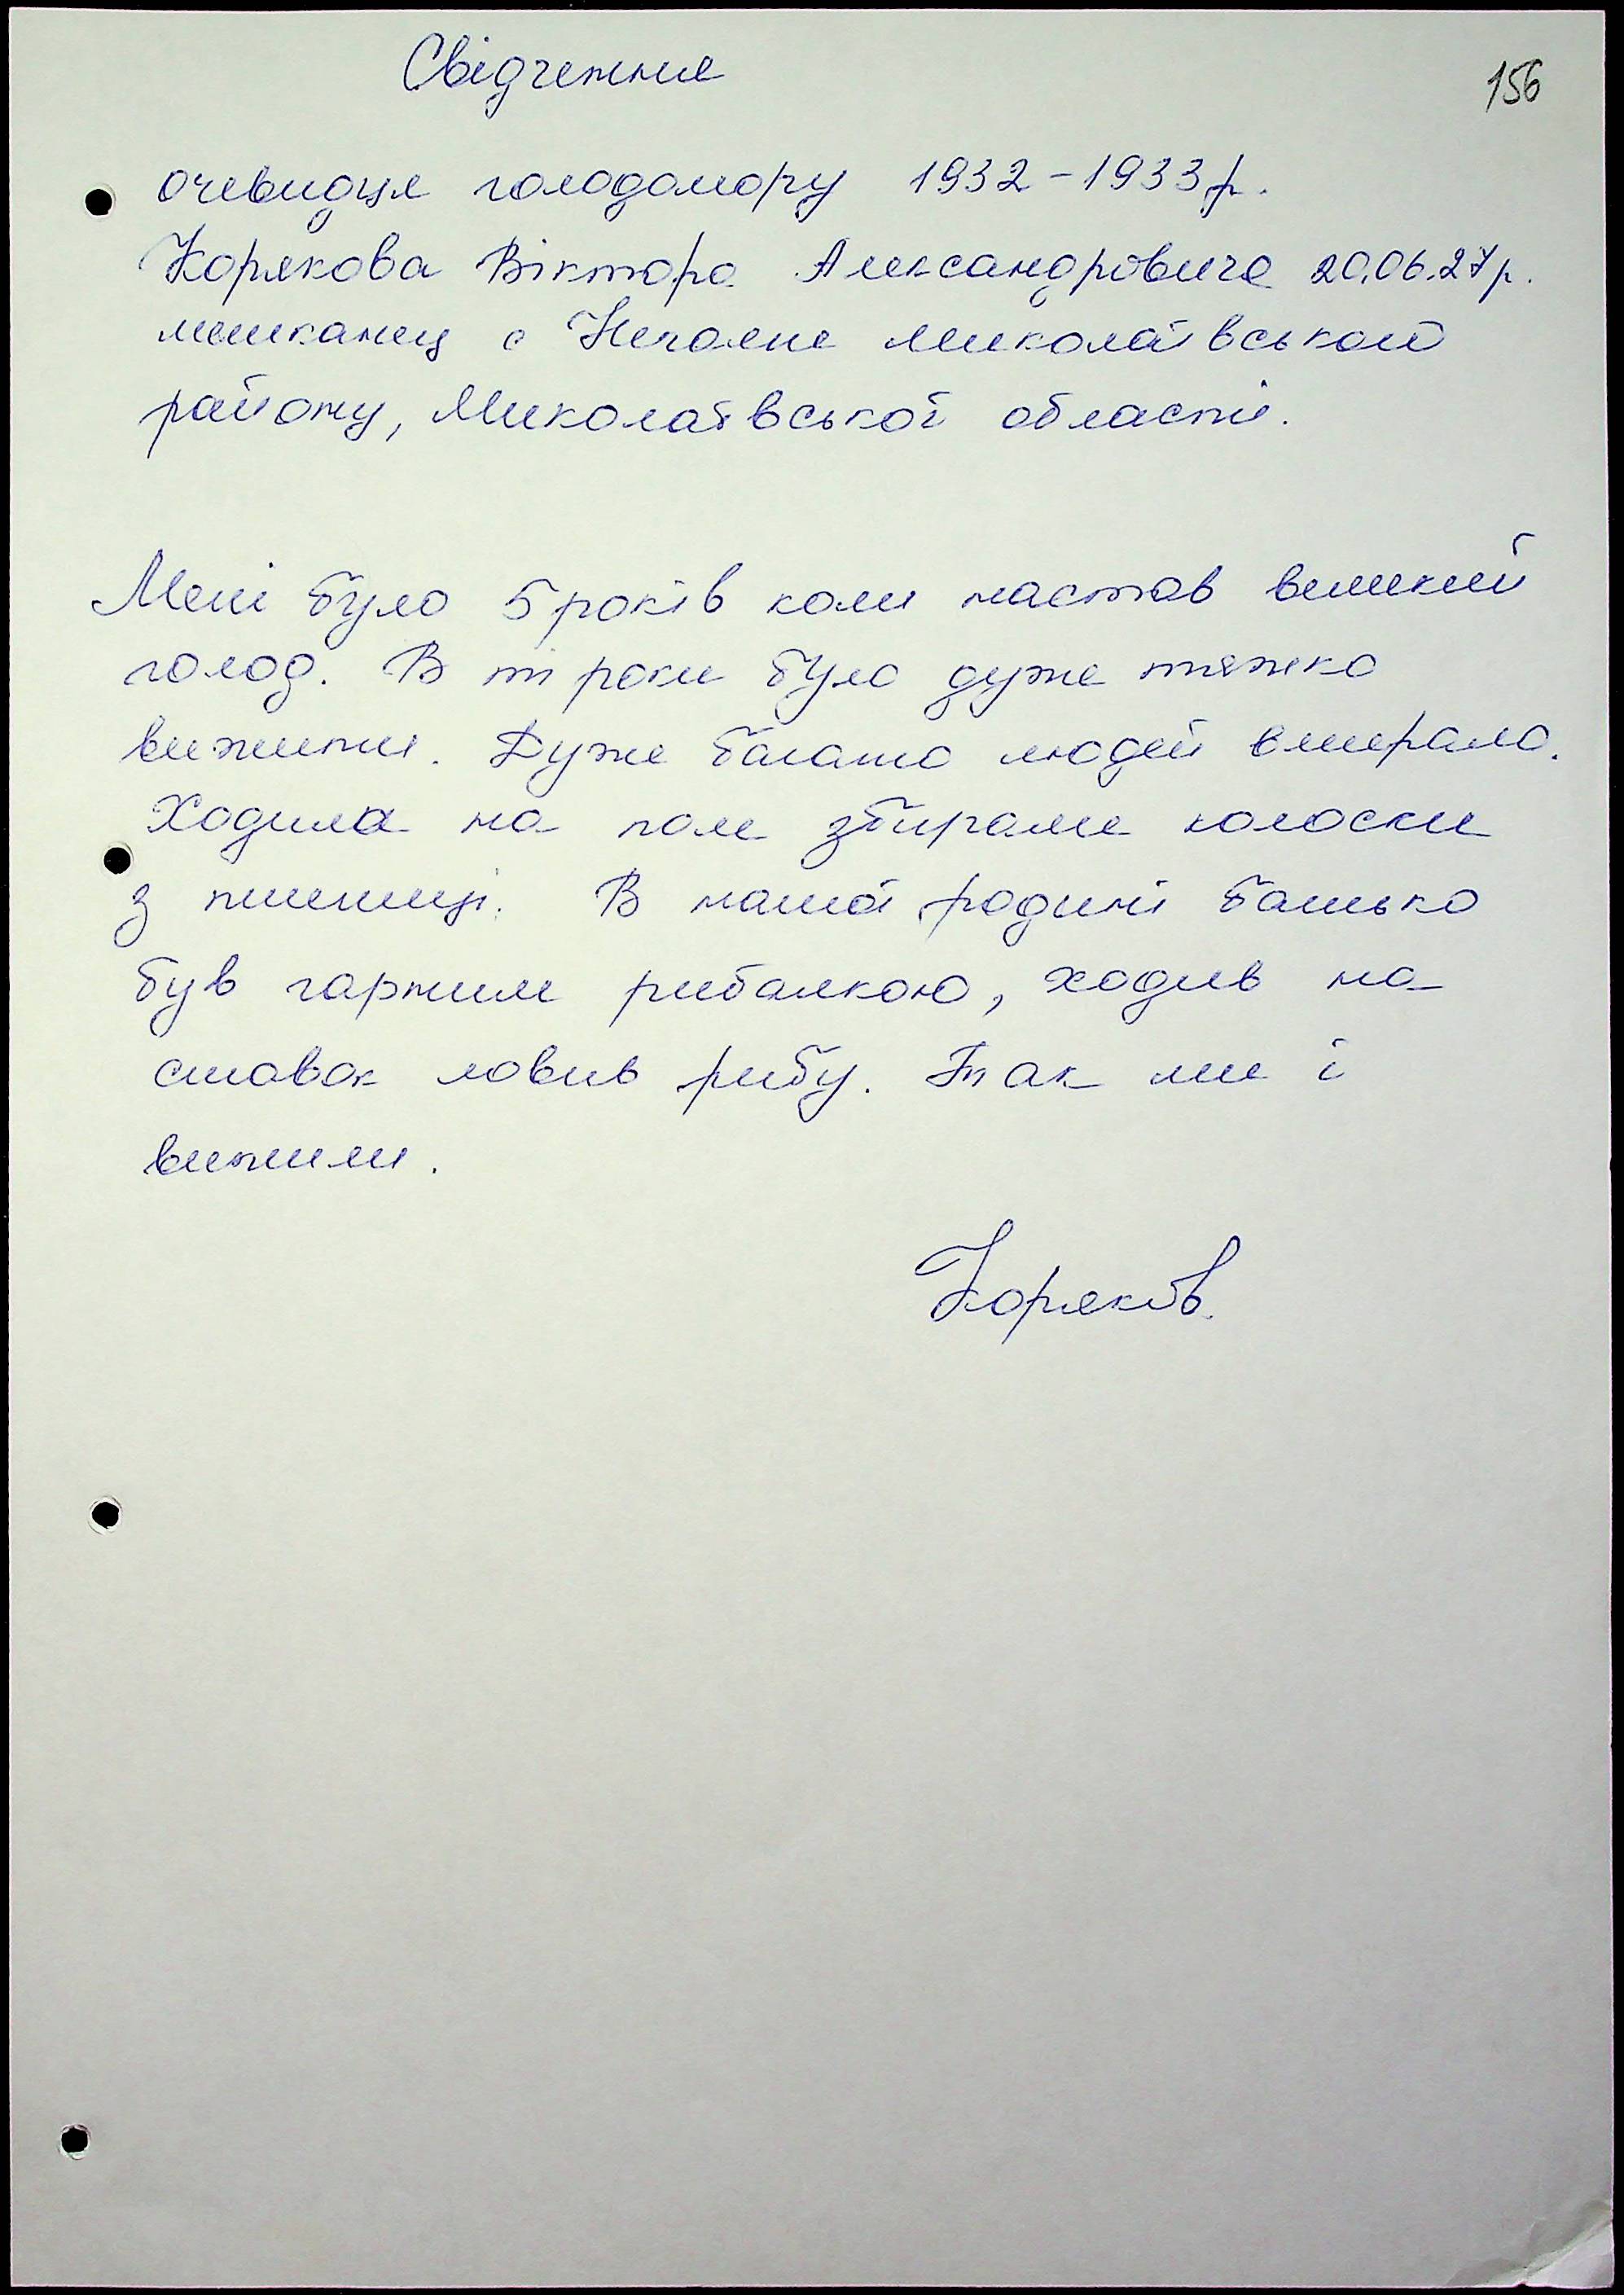 Свідчення
156
очевидця голодомору 1932-1933р.
Корякова Віктора Александровича 20.06.27р.
мешканец с Нечаяне миколаївський
району, Миколаївської області.
Мені було 5 років коли настав великий
голод. В ті роки було дуже тяжко
вижити. Дуже багато людей вмирало.
Ходила на поле збирали колоски
з пшениці. В нашої родині батько
був гарним рибалкою, ходив на
ставок ловив рибу. Так ми і
вижили.
Коряков.